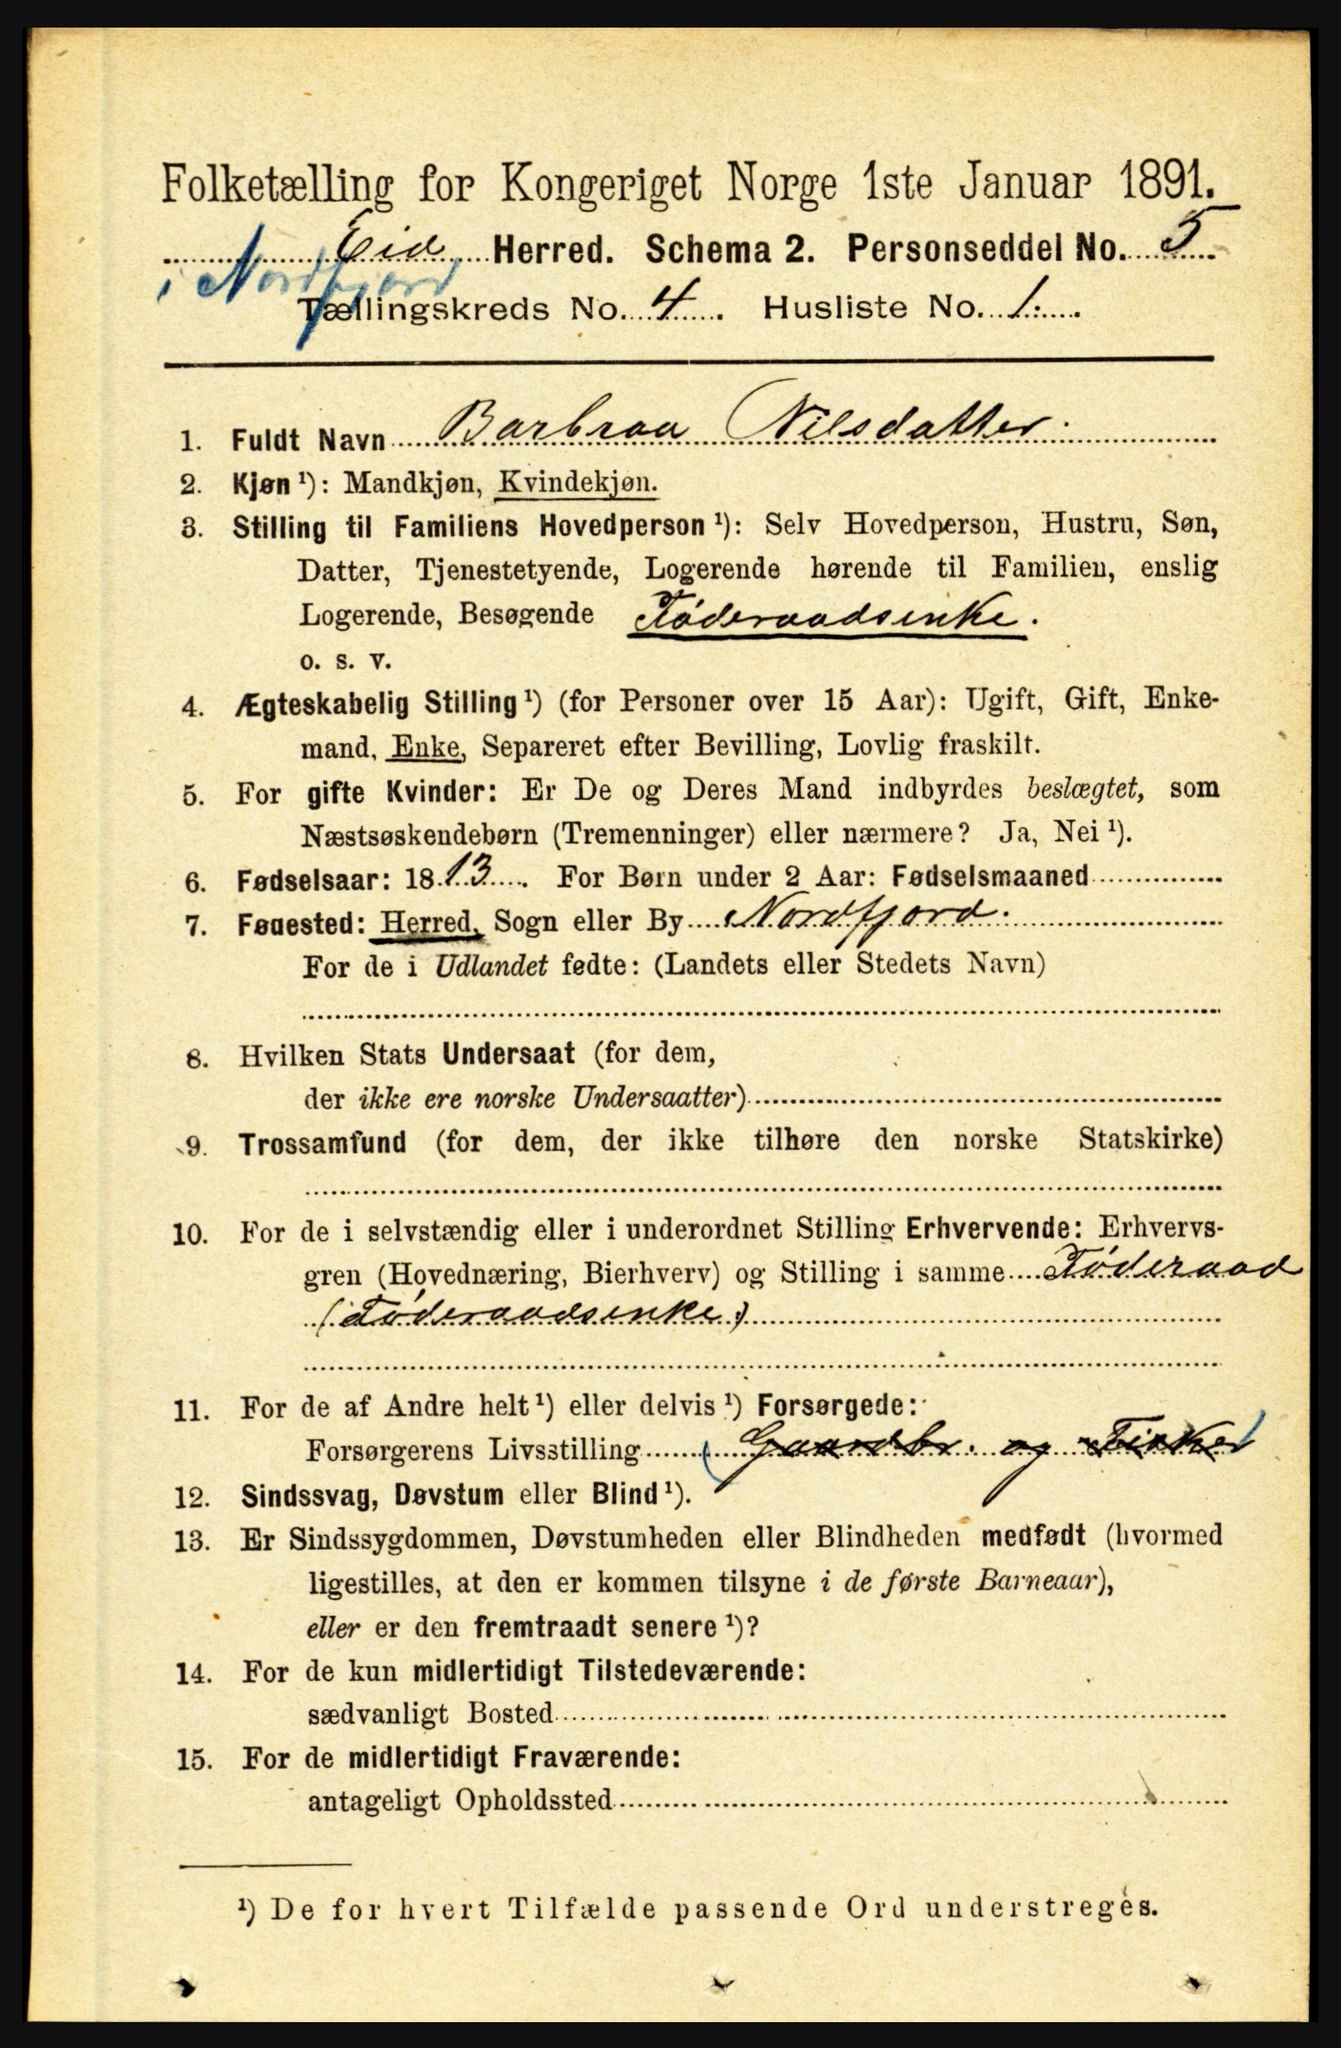 Folketælling for Kongeriget Norge 1ste Januar 1891.
Eid Herred. Schema 2. Personseddel No. 5
i Nordfjord
Tællingskreds No. 4. Husliste No. 1.
1. Fuldt Navn Barbraa Nilsdatter.
2. Kjøn ¹): Mandkjøn, Kvindekjøn.
3. Stilling til Familiens Hovedperson ¹): Selv Hovedperson, Hustru, Søn,
Datter, Tjenestetyende, Logerende hørende til Familien, enslig
Logerende, Besøgende Føderaadsenke.
o. s. v.
4. Ægteskabelig Stilling ¹) (for Personer over 15 Aar): Ugift, Gift, Enke-
mand, Enke, Separeret efter Bevilling, Lovlig fraskilt.
5. For gifte Kvinder: Er De og Deres Mand indbyrdes beslægtet, som
Næstsøskendebørn (Tremenninger) eller nærmere? Ja, Nei ¹).
6. Fødselsaar: 1813. For Børn under 2 Aar: Fødselsmaaned
7. Fødested: Herred, Sogn eller By Nordfjord.
For de i Udlandet fødte: (Landets eller Stedets Navn)
8. Hvilken Stats Undersaat (for dem,
der ikke ere norske Undersaatter)
9. Trossamfund (for dem, der ikke tilhøre den norske Statskirke)
10. For de i selvstændig eller i underordnet Stilling Erhvervende: Erhvervs-
gren (Hovednæring, Bierhverv) og Stilling i samme Føderaad
(Føderaadsenke)
11. For de af Andre helt ¹) eller delvis ¹) Forsørgede:
Forsørgerens Livsstilling (Gaardbr. og Fisker)
12. Sindssvag, Døvstum eller Blind ¹).
13. Er Sindssygdommen, Døvstumheden eller Blindheden medfødt (hvormed
ligestilles, at den er kommen tilsyne i de første Barneaar),
eller er den fremtraadt senere ¹)?
14. For de kun midlertidigt Tilstedeværende:
sædvanligt Bosted
15. For de midlertidigt Fraværende:
antageligt Opholdssted
¹) De for hvert Tilfælde passende Ord understreges.